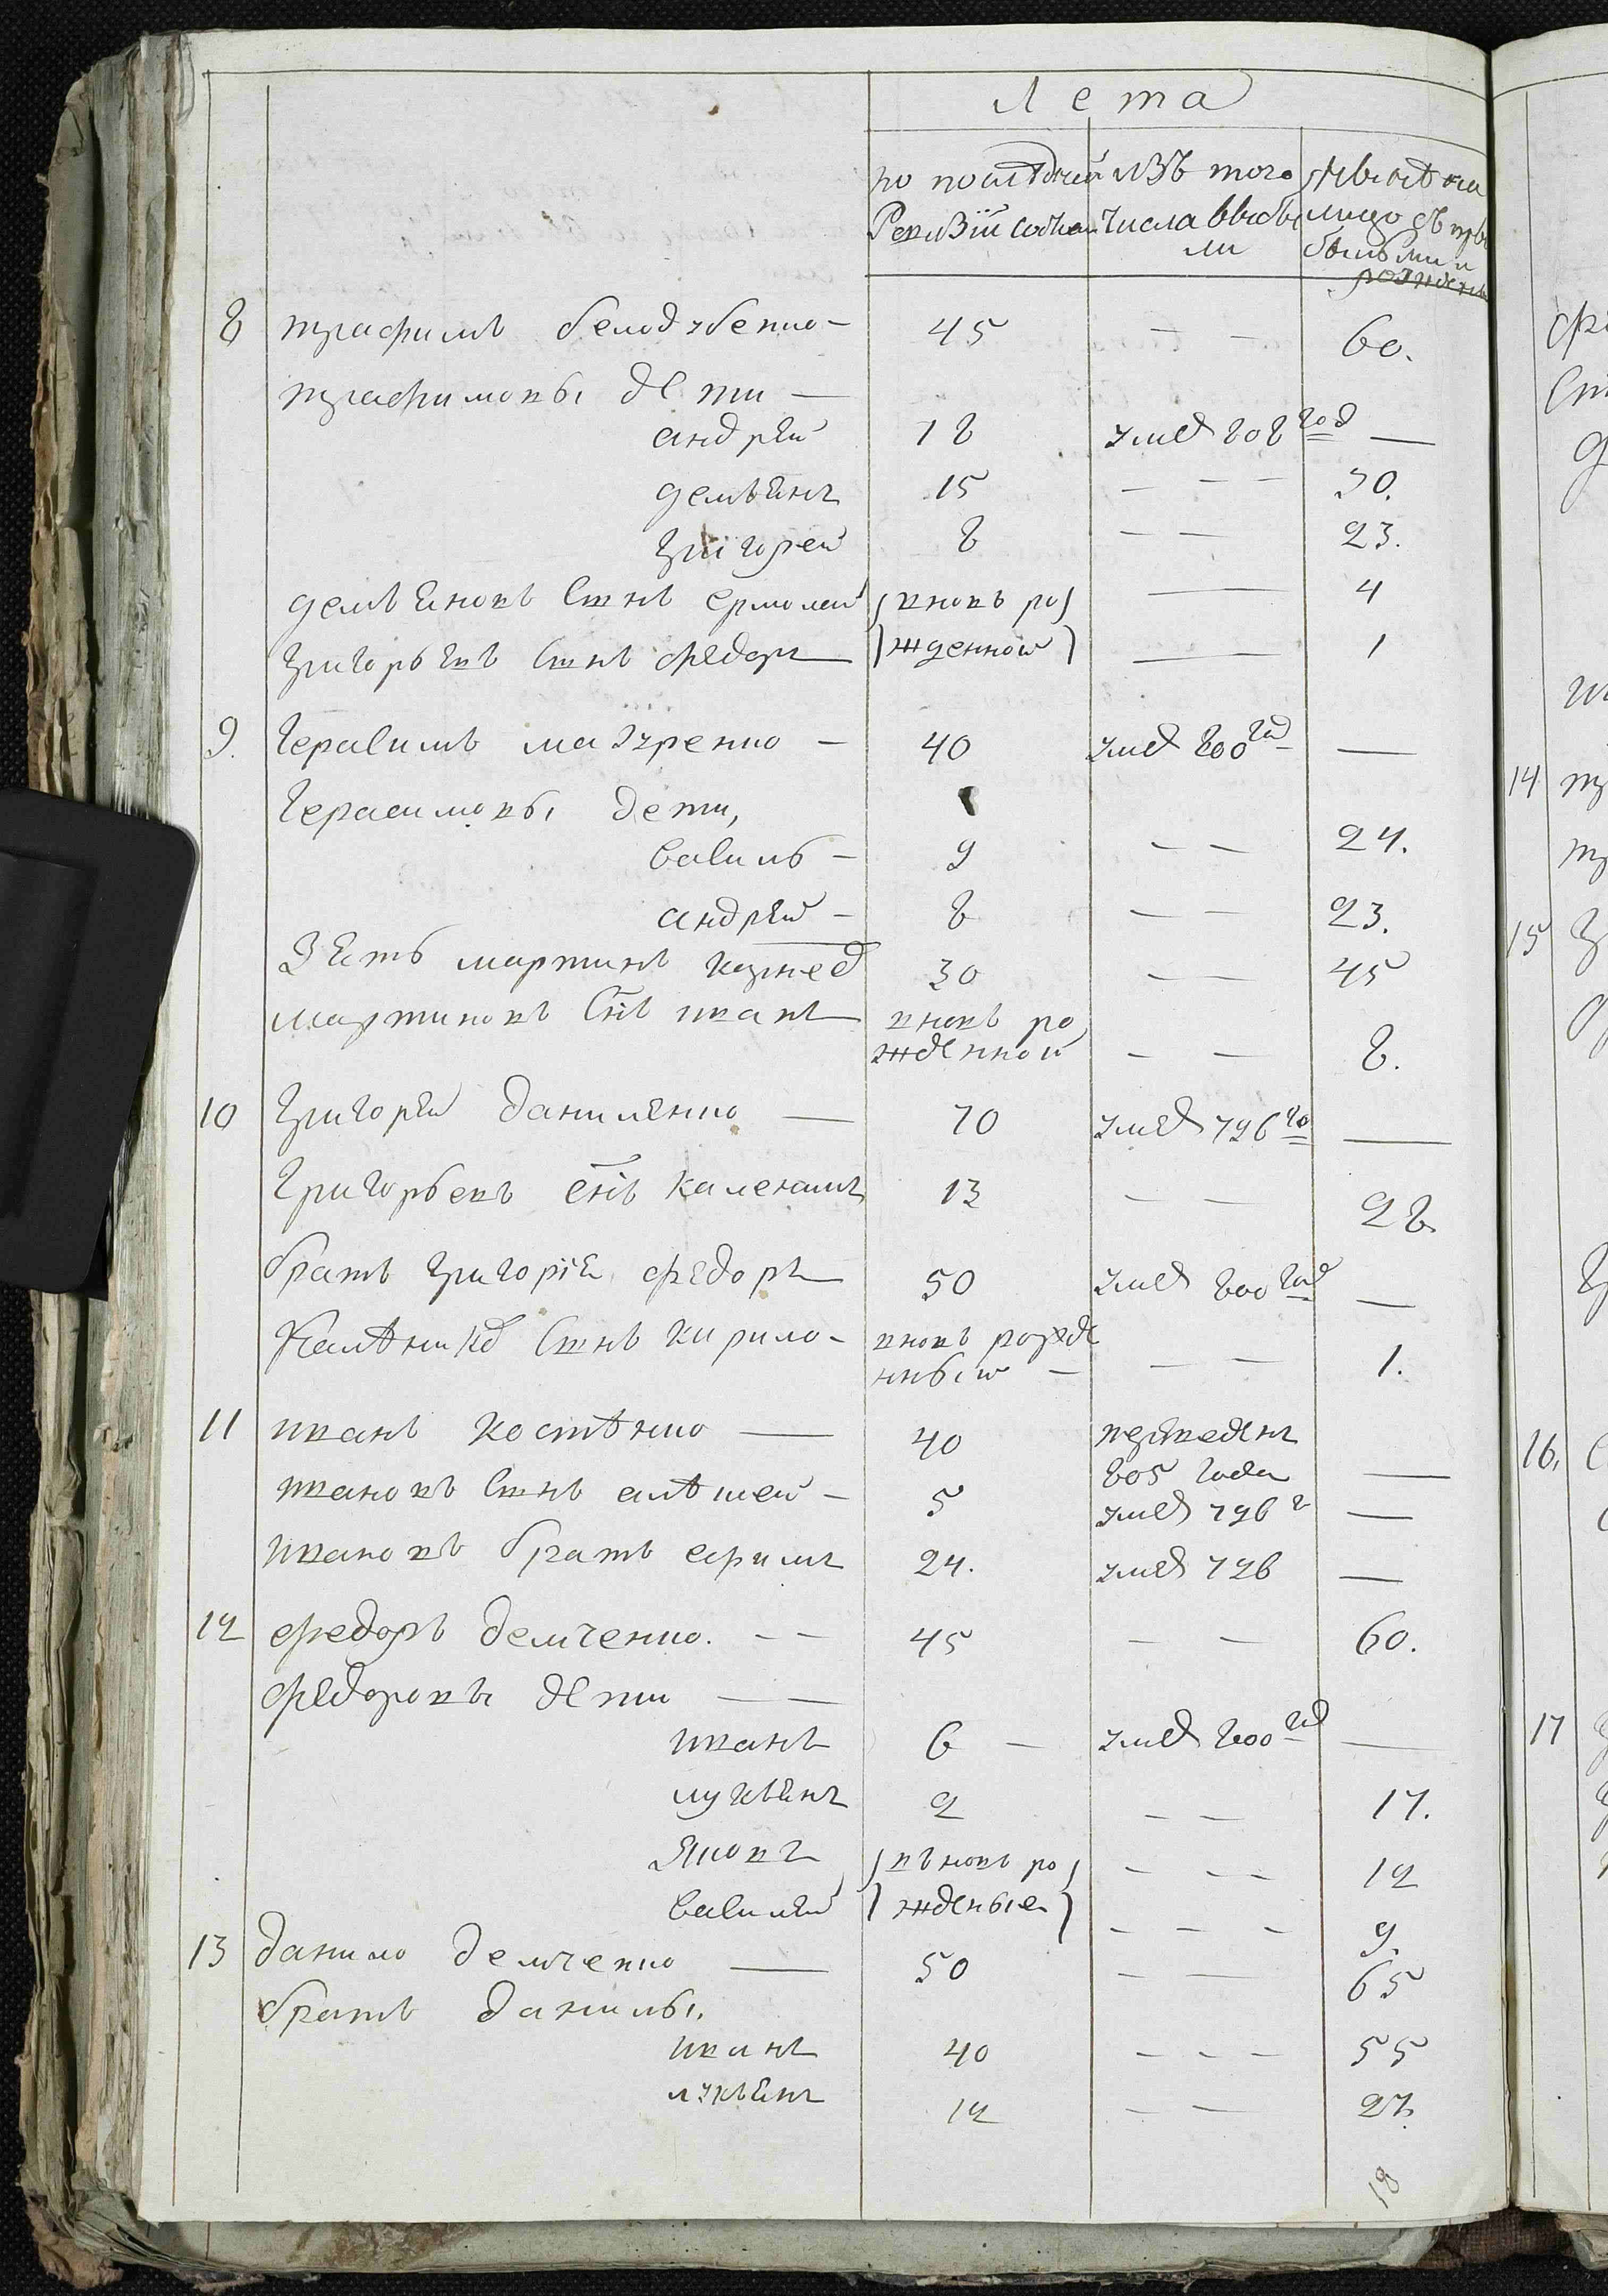 Лета
по последней изъ того Нынѣ на
Ревизіи состояли числа выбы лицо съ при
ли былыми и
рожденн
8 трафимъ белодубенко - 45 — — 60.
трафимовы дети —
андрей 18 умер 808 год —
демьянъ 15 — — — 30.
григорей 8 — — 23.
демьяновъ сынъ ермолай вновь ро — 4
григорьевъ сынъ федоръ жденной — 1
9. Герасимъ мазуренко - 40 умер 800 год —
Герасимовы дети,
василь - 9 — — 24.
андрей - 8 — — 23.
Зять мартинъ 30 — — 45
мартиновъ снъ иванъ вновь ро
жденной — — 8.
10 Григорей даниленко — 70 умер 796 го —
Григорьевъ снъ каленикъ 13 — — 28
братъ григорія федоръ 50 умер 800 год —
Калѣника сынъ кирило - вновь рожде
нный — — — 1.
11 иванъ костѣнко — 40 переведенъ
805 года —
ивановъ сынъ алѣксей - 5 умер 796 г —
ивановъ братъ ефимъ 24. умер 796 —
12 федоръ демченко. — — 45 — — 60.
федоровы дети — —
иванъ 6 — умер 800 год —
лукьянъ 2 — — 17.
Яковъ въновь ро — — — 12
василей жденые — — — 9.
13 данило демченко — 50 — — 65
братъ данилы.
иванъ 40 — — — 55
лукьянъ 12 — — 27.
18
14
15
16.
17